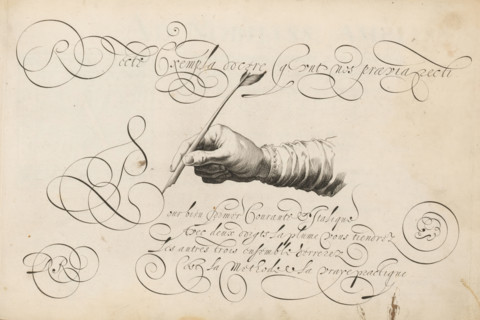 Recte Exempla docere nos prævia recti
Pour bien former Courante & Italique
Avec deux doigts la plume vous tiendrez
Les autres trois ensemble
C'est la Methode & la vraye practique